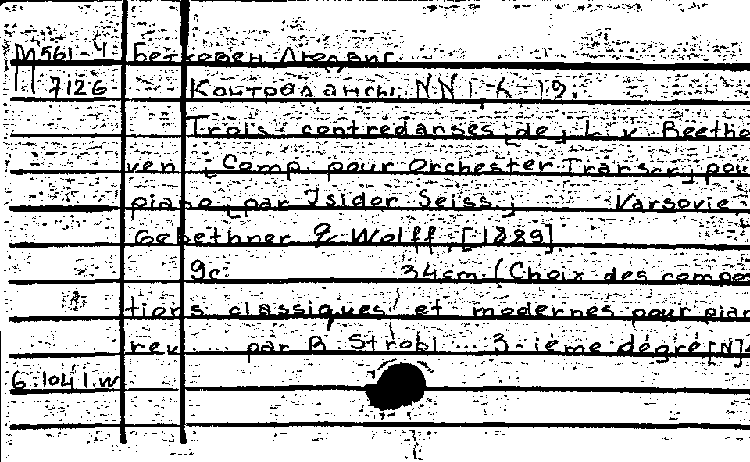 М561-4 Бетховен Людвиг
7126 Контрдансы. NN 1-
Trois contredanses de L. v. Beetho
ven [Comp. pour Orchester Transcr. pour
piano par Isidor Seiss. Varsovie
Gebethner & Wolff, [1889]
9c. 34cm (Choix des compo
tions classiques et modernes pour pian
rev par R Strobl 3-ième dégré [N]
6.1041.w